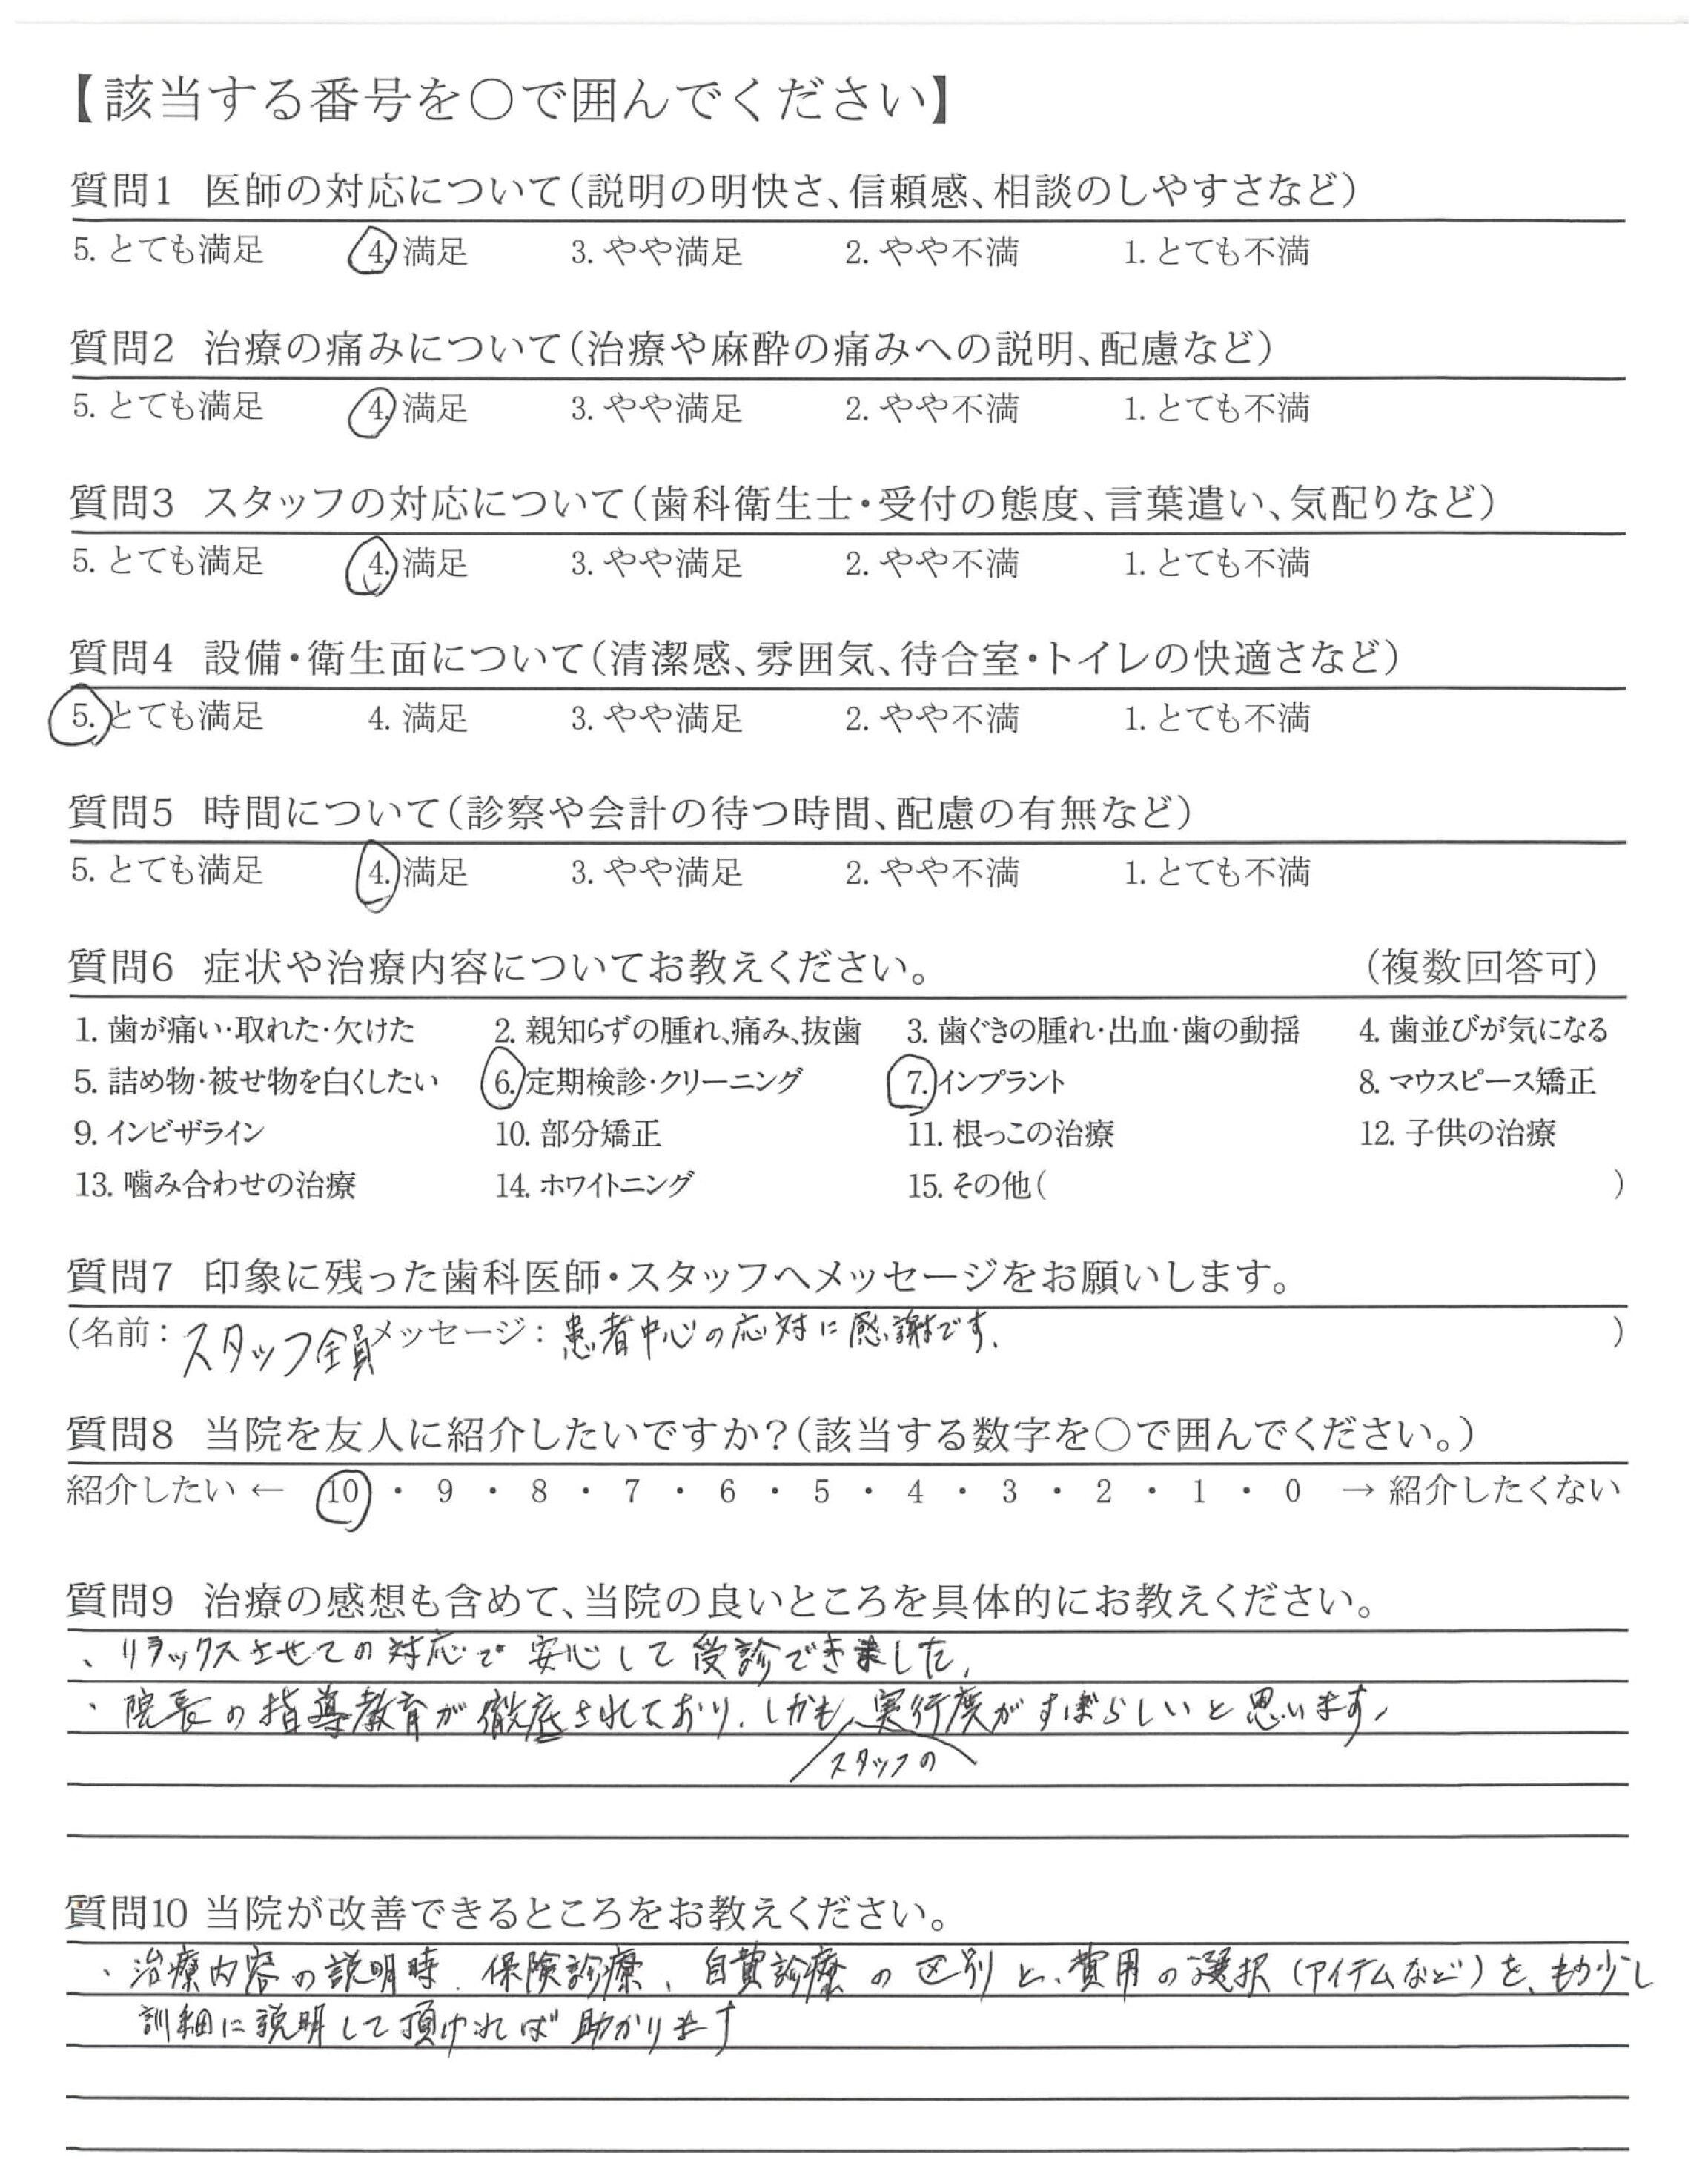 【該当する番号を○で囲んでください】
質問1 医師の対応について(説明の明快さ、信頼感、相談のしやすさなど)
5. とても満足 4. 満足 3. やや満足 2. やや不満 1. とても不満
質問2 治療の痛みについて(治療や麻酔の痛みへの説明、配慮など)
5. とても満足 4. 満足 3. やや満足 2. やや不満 1. とても不満
質問3 スタッフの対応について(歯科衛生士・受付の態度、言葉遣い、気配りなど)
5. とても満足 4. 満足 3. やや満足 2. やや不満 1. とても不満
質問4 設備・衛生面について(清潔感、雰囲気、待合室・トイレの快適さなど)
5. とても満足 4. 満足 3. やや満足 2. やや不満 1. とても不満
質問5 時間について(診察や会計の待つ時間、配慮の有無など)
5. とても満足 4. 満足 3. やや満足 2. やや不満 1. とても不満
質問6 症状や治療内容についてお教えください。 (複数回答可)
1. 歯が痛い・取れた・欠けた 2. 親知らずの腫れ、痛み、抜歯 3. 歯ぐきの腫れ・出血・歯の動揺 4. 歯並びが気になる
5. 詰め物・被せ物を白くしたい 6. 定期検診・クリーニング 7. インプラント 8. マウスピース矯正
9. インビザライン 10. 部分矯正 11. 根っこの治療 12. 子供の治療
13. 噛み合わせの治療 14. ホワイトニング 15. その他( )
質問7 印象に残った歯科医師・スタッフへメッセージをお願いします。
(名前:スタッフ全員 メッセージ:患者中心の応対に感謝です. )
質問8 当院を友人に紹介したいですか?(該当する数字を○で囲んでください。)
紹介したい ← 10 ・ 9 ・ 8 ・ 7 ・ 6 ・ 5 ・ 4 ・ 3 ・ 2 ・ 1 ・ 0 → 紹介したくない
質問9 治療の感想も含めて、当院の良いところを具体的にお教えください。
、リラックスさせての対応で安心して受診できました、
・院長の指導教育が徹底されており、しかも、実行度がすばらしいと思います、
スタッフの
質問10 当院が改善できるところをお教えください。
・治療内容の説明時、保険診療、自費診療の区別と、費用の選択(アイテムなど)を、もう少し
訓細に説明して頂ければ助かります